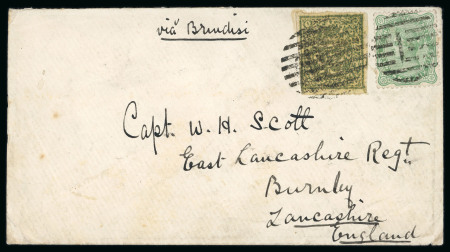 viâ Brindisi
Capt. W. H. Scott
East Lancashire Regt.
Burnley
Lancashire
England